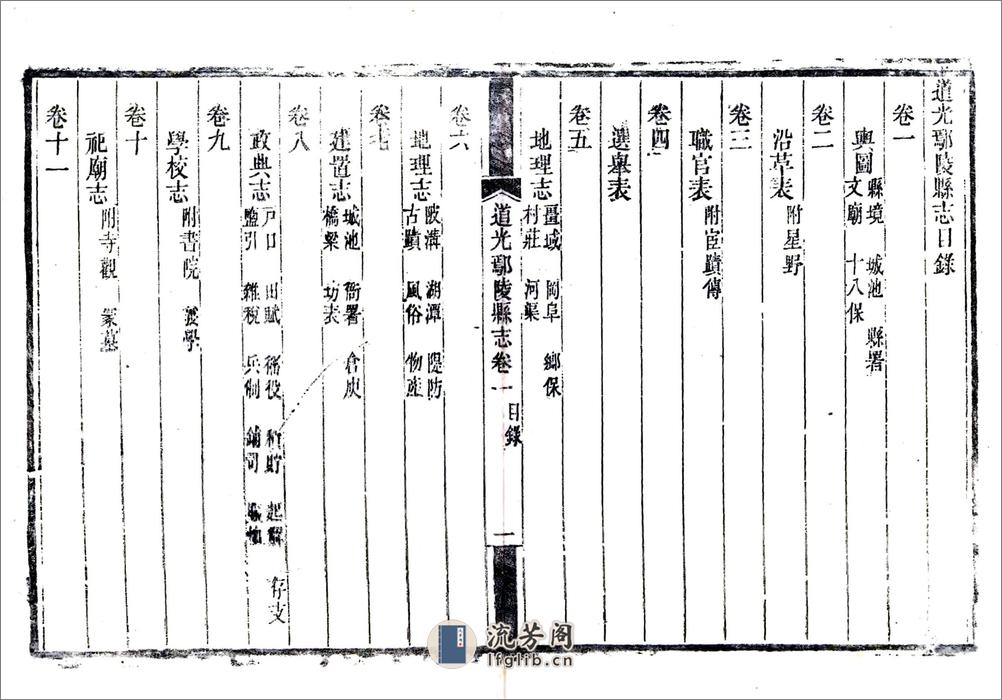 道光鄢陵縣志目錄
卷一
輿圖 縣境 城池 縣署
文廟 十八保
卷二
沿革表 附星野
卷三
職官表 附宦蹟傳
卷四
選舉表
卷五
地理志 疆域 岡阜 鄉保
村莊 河渠
道光鄢陵縣志卷一 目錄 一
卷六
地理志 陂溝 湖潭 隄防
古蹟 風俗 物產
卷七
建置志 城池 衙署 倉庾
橋梁 坊表
卷八
政典志 戶口 田賦 徭役 積貯 起解 存支
鹽引 雜稅 兵制 鋪司
卷九
學校志 附書院 義學
卷十
祀廟志 附寺觀 冢墓
卷十一
流芳阁
lfglib.cn